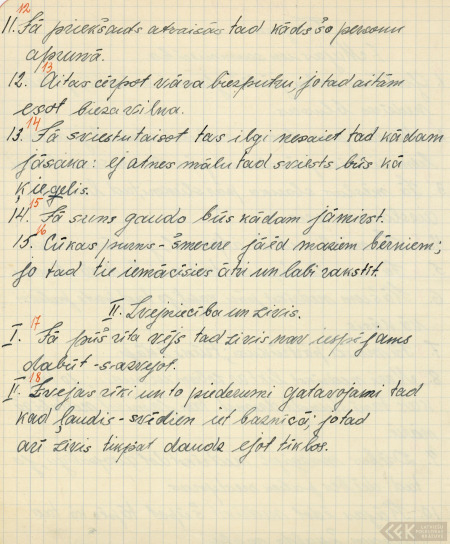 12
11. Ja priekšauts atraisās tad kāds šo personu
aprunā.
13
12. Aitas cērpot vāra biezputru; jo tad aitām
esot bieza vilna.
14
13. Ja sviestu taisot tas ilgi nesaiet tad kādam
jāsaka: ej atnes mālu tad sviests būs kā
ķieģelis.
15
14. Ja suns gaudo būs kādam jāmirst.
16
15. Cūkas purns - šņecere jāēd maziem bērniem;
jo tad tie iemācīsies ātri un labi rakstīt.
II. Zvejniecība un zivis.
17
I. Ja pūš rīta vējs tad zivis nav iespējams
dabūt - sazvejot.
18
II. Zvejas rīki un to piederumi gatavojami tad
kad ļaudis - svēdien iet baznīcā; jo tad
arī zivis tikpat daudz ejot tīklos.
LATVIEŠU
FOLKLORAS
KRĀTUVE